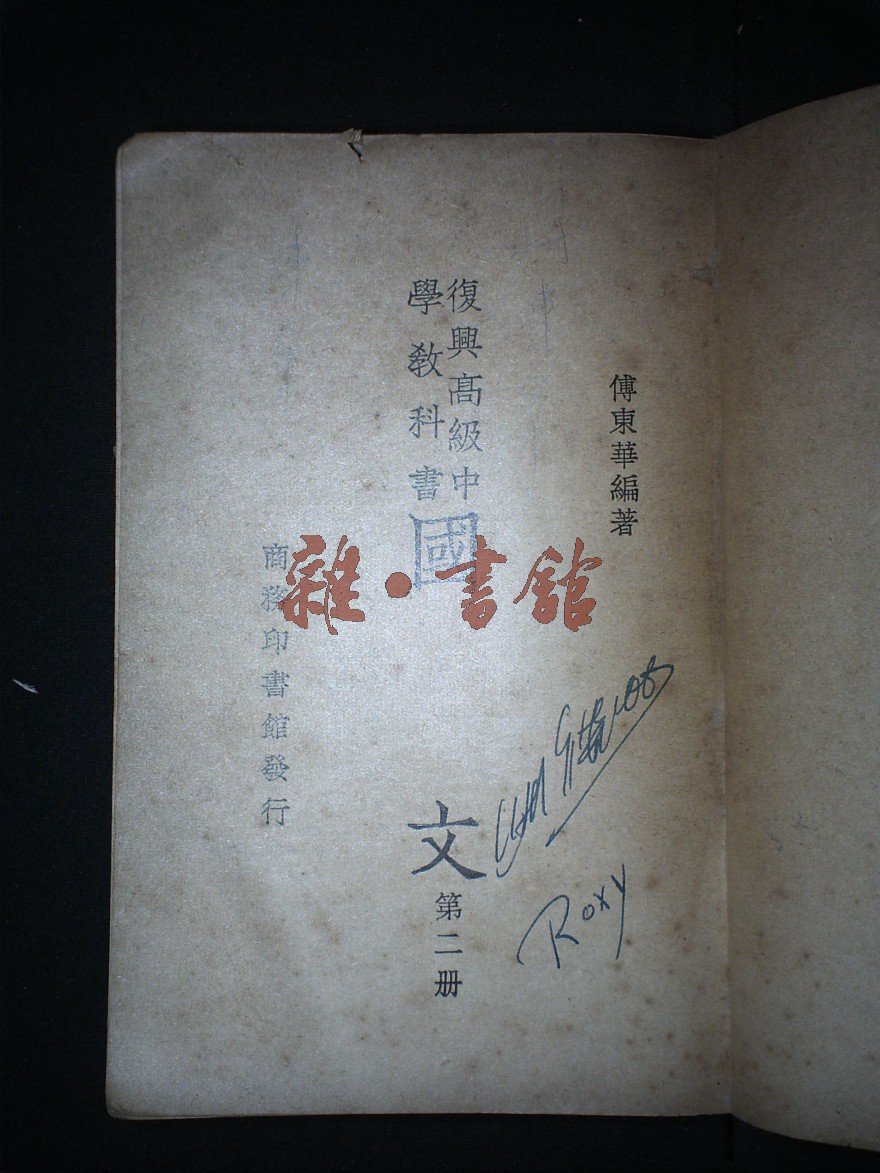 傅東華編著
復興高級中
學教科書
國文
第二册
商務印書館發行
雜·書館
Roxy